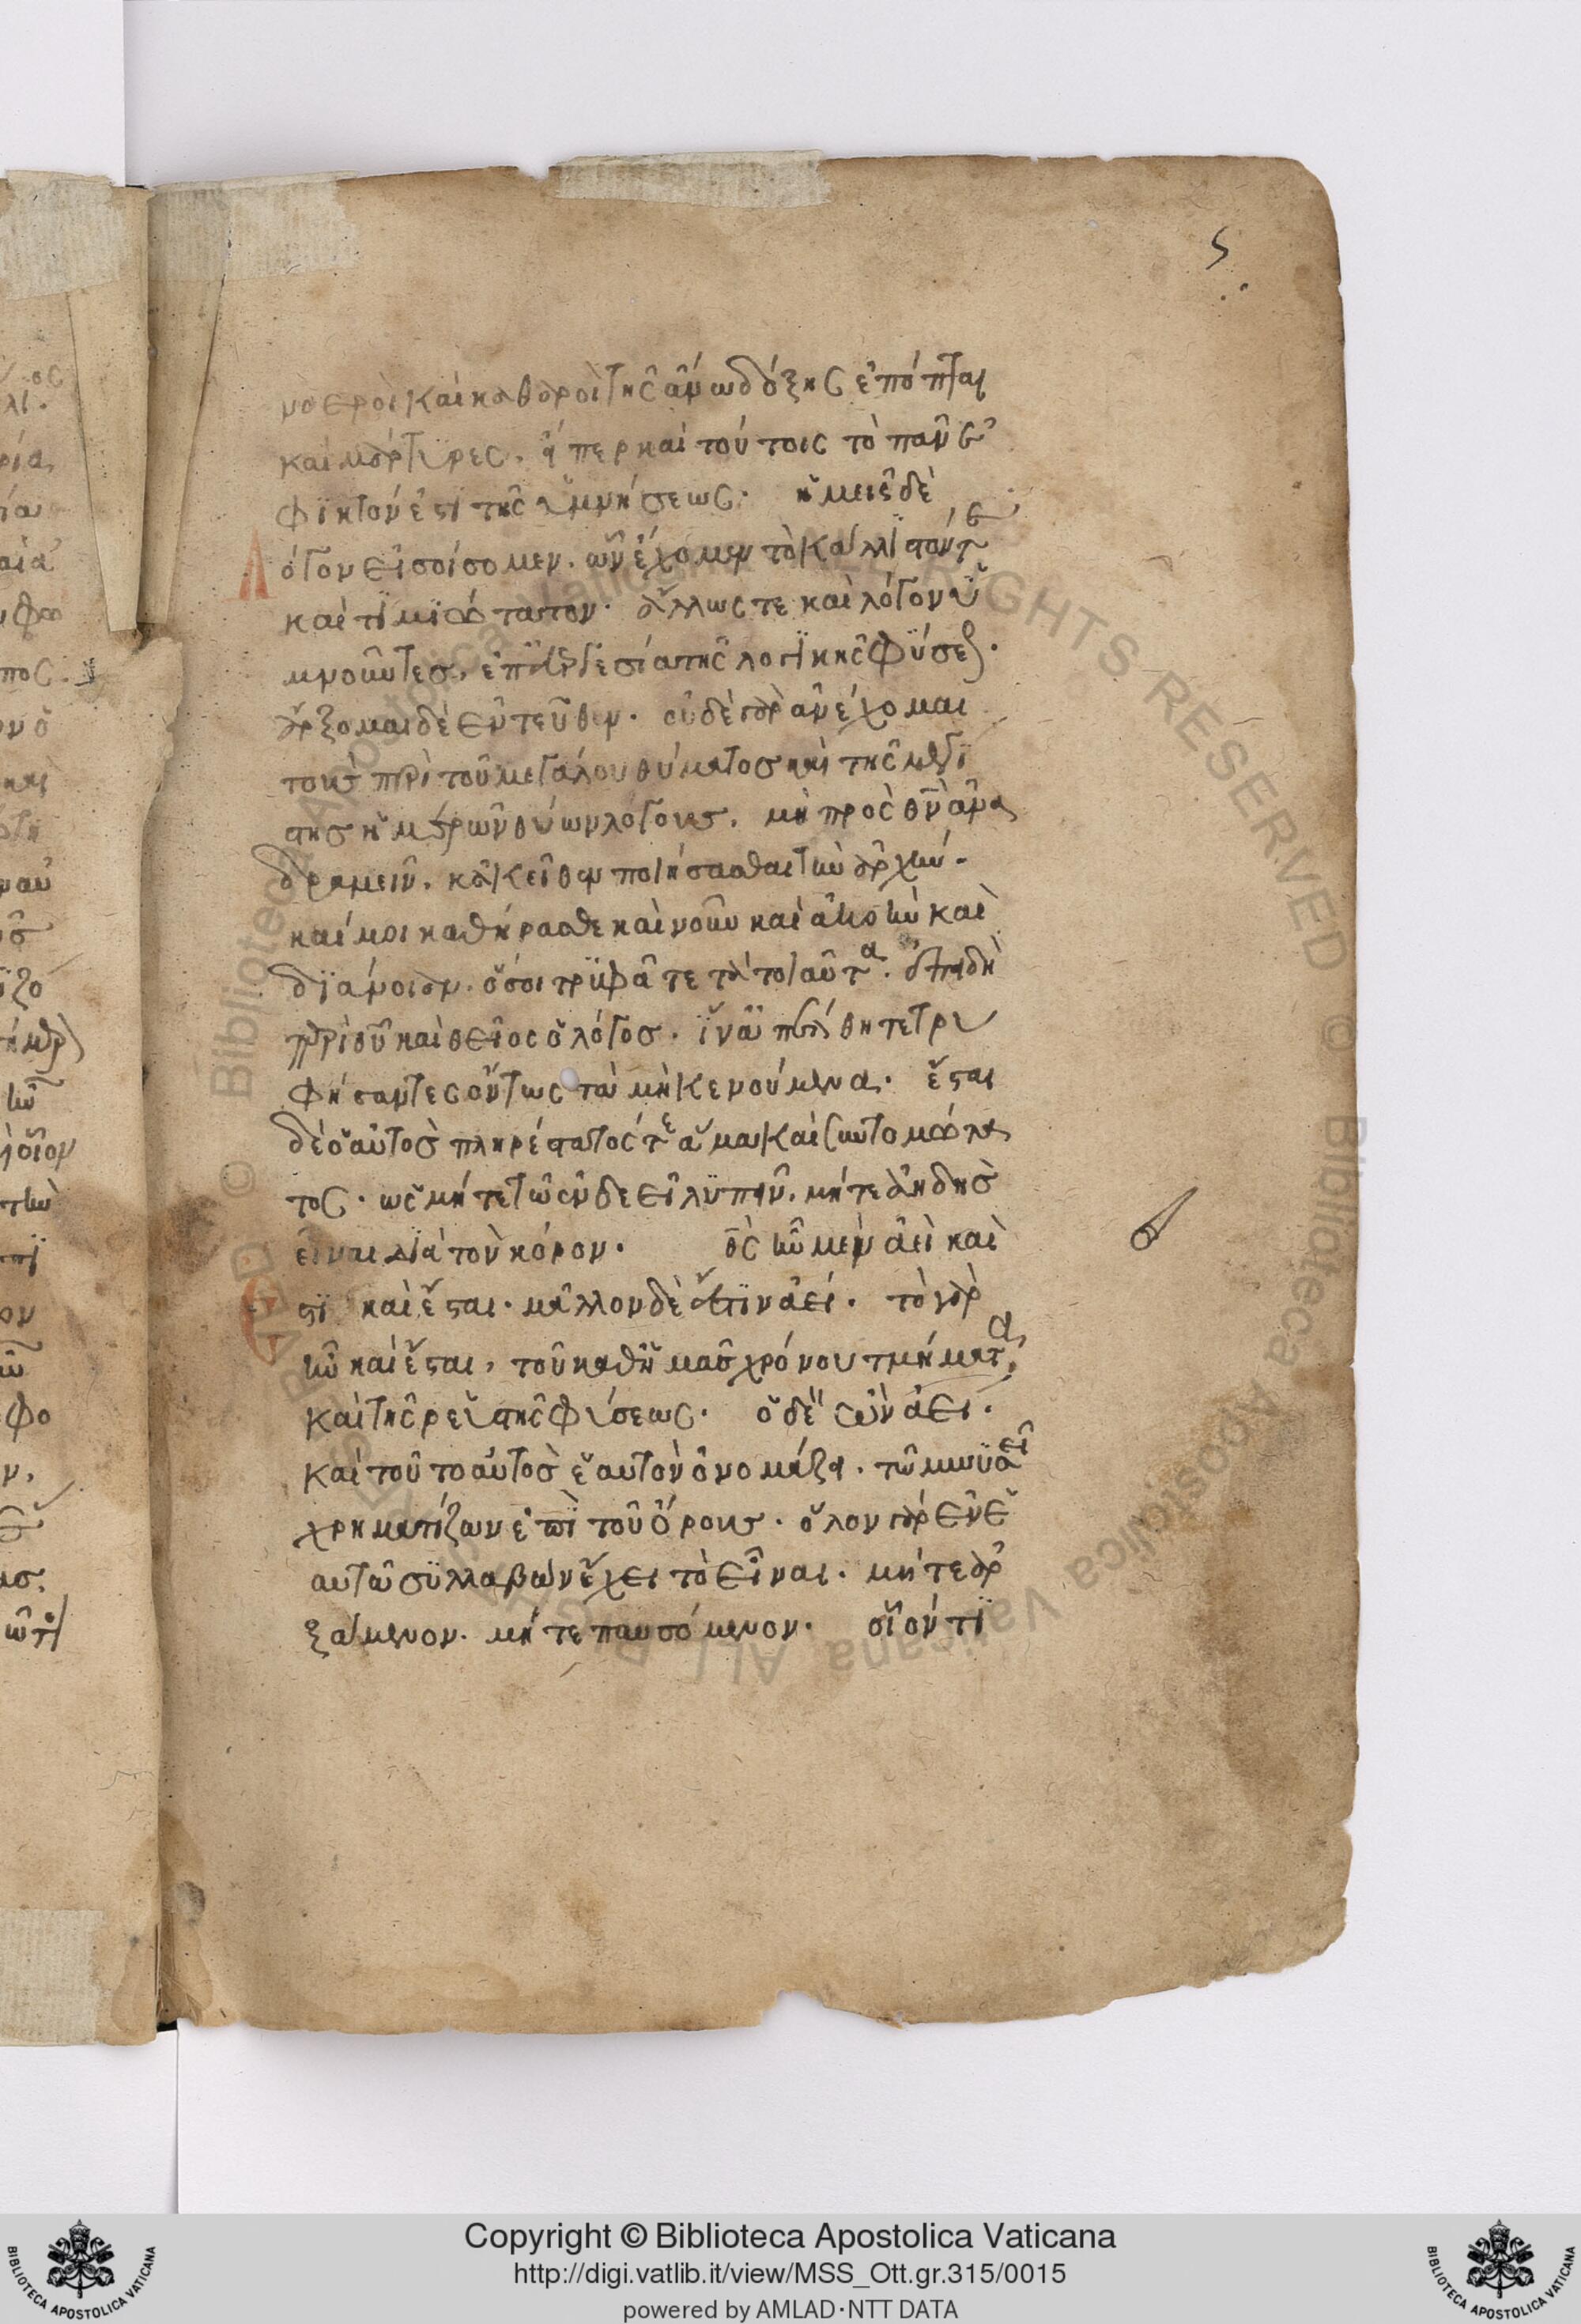 ς
νοεροὶ καὶ καθαροὶ τῆς ἄνω δόξης ἐπόπται
καὶ μάρτυρες. ᾗπερ καὶ τούτοις τὸ πᾶν ἐ
φικτόν ἐστι τῆς ὑμνήσεως. ἡμεῖς δὲ
λόγον εἰσοίσομεν. ὧν ἔχομεν τὸ κάλλιστόν τε
καὶ τιμιώτατον. ἄλλως τε καὶ λόγον ὑ
μνοῦντες, ἐπ' εὐεργεσία τῆς λογικῆς φύσεως.
ἄρξομαι δὲ ἐντεῦθεν. οὐδὲ γὰρ ἀνέχομαι
τοὺς περὶ τοῦ μεγάλου θύματος καὶ τῆς μεγί
στης ἡμερῶν θύων λόγους, μὴ πρὸς θν ἀνα
δραμεῖν. κἀκεῖθεν ποιήσασθαι τὴν ἀρχήν.
καί μοι καθήρασθε καὶ νοῦν καὶ ἀκοὴν καὶ
διάνοιαν. ὅσοι τρυφᾶτε τὰ τοιαῦτα. ἐπειδὴ
περὶ θυ καὶ θεῖος ὁ λόγος. ἵν' ἀπέλθητε τρυ
φήσαντες ὄντως τὰ μὴ κενούμενα. ἔσται
δὲ ὁ αὐτὸς πληρέστατός τε ἅμα καὶ συντομώτα
τος. ὡς μήτε τῷ ἐνδεεῖ λυπεῖν. μήτε ἀηδὴς
εἶναι διὰ τὸν κόρον. θς ἦν μὲν ἀεὶ καὶ
ἔστι καὶ ἔσται. μᾶλλον δὲ ἔστιν ἀεί. τὸ γὰρ
ἦν καὶ ἔσται, τοῦ καθ' ἡμᾶς χρόνου τμήματα,
καὶ τῆς ῥευστῆς φύσεως. ὁ δὲ ὢν ἀεί.
καὶ τοῦτο αὐτὸς ἑαυτὸν ὀνομάζει. τῷ μωυσεῖ
χρηματίζων ἐπὶ τοῦ ὄρους. ὅλον γὰρ ἐν ἑ
αυτῷ συλλαβὼν ἔχει τὸ εἶναι. μήτε ἀρ
ξάμενον. μήτε παυσόμενον. οἷόν τι
Copyright © Biblioteca Apostolica Vaticana
http://digi.vatlib.it/view/MSS_Ott.gr.315/0015
powered by AMLAD·NTT DATA